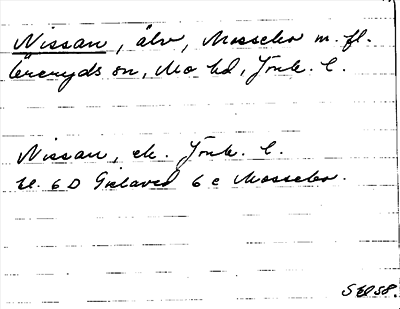 Nissan, älv, Mossebo m. fl.
öreryds sn, Mo hd, Jönk. l.
Nissan, ek. Jönk. l.
bl. 6 D Gislaved 6 c Mossebo.